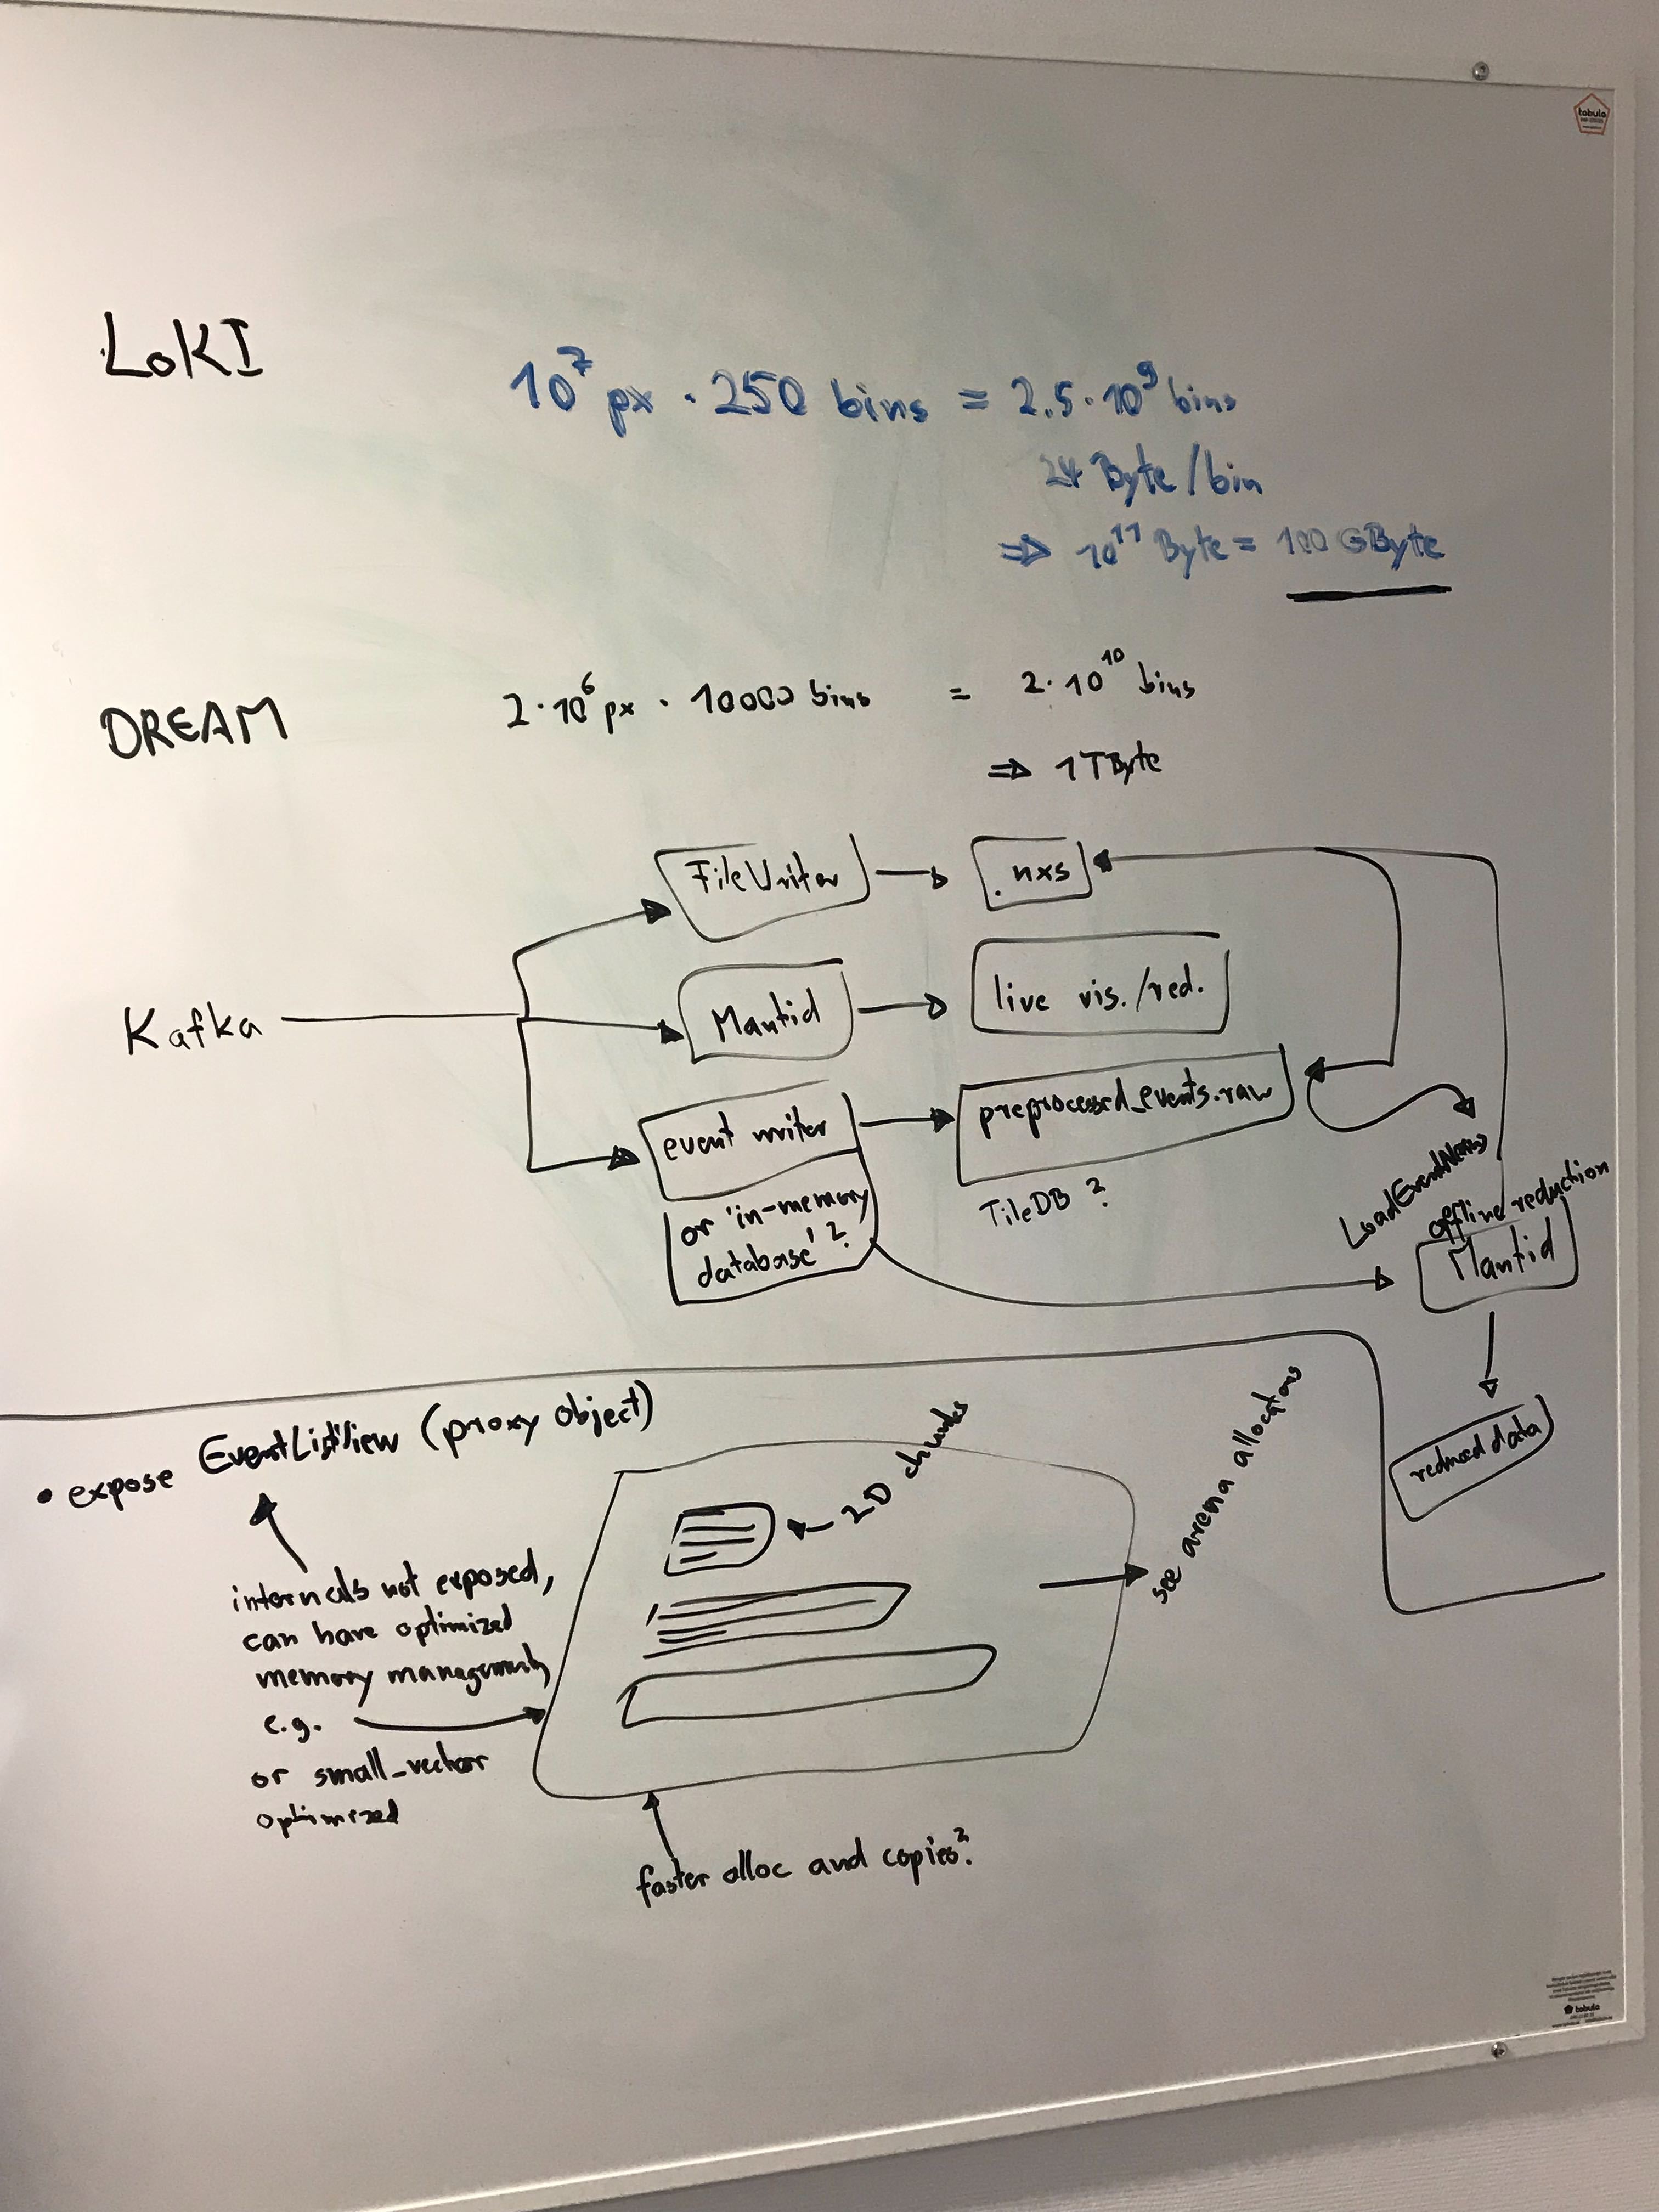 LoKI
10⁷ px · 250 bins = 2.5·10⁹ bins
24 Byte/bin
⇒ 10¹¹ Byte = 100 GByte
DREAM
2·10⁶ px · 10000 bins = 2·10¹⁰ bins
⇒ 1TByte
FileWriter
.nxs
Kafka
Mantid
live vis./red.
event writer
preprocessed_events.raw
or 'in-memory
database'?
TileDB ?
LoadEventNexus
offline reduction
Mantid
reduced data
• expose EventListView (proxy object)
internals not exposed,
can have optimized
memory management,
e.g.
or small_vector
optimized
2D chunks
see arena allocators
faster alloc and copies?
tabula
tabula